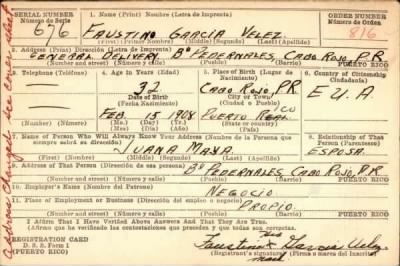 SERIAL NUMBER
Número de Serie
676
1. Name (Print) Nombre (Letra de Imprenta)
FAUSTINO GARCIA VELEZ
(First) (Nombre) (Middle) (Segundo) (Last) (Apellido)
ORDER NUMBER
Número de Orden
816
2. Address (Print) Dirección (Letra de Imprenta)
GENERAL DELIVERY Bº PEDERNALES CABO ROJO, P.R.
(Number and street) (Número y calle) (Town) (Barrio) PUERTO RICO
3. Telephone (Teléfono)
—
—
4. Age in Years (Edad)
32
Date of Birth
(Fecha Nacimiento)
FEB. 15 1908
(Mo.) (Day) (Yr.)
(Mes) (Día) (Año)
5. Place of Birth (Lugar de Nacimiento)
CABO ROJO, P.R.
City or Town
(Ciudad o Pueblo)
PUERTO RICO
6. Country of Citizenship
(Ciudadanía)
E.U.A
7. Name of Person Who Will Always Know Your Address (Nombre de la Persona que siempre sabrá su dirección)
JUANA MAYA
(First) (Nombre) (Middle) (Segundo) (Last) (Apellido)
8. Relationship of That Person (Parentesco)
ESPOSA
9. Address of That Person (Dirección de esa persona)
Bº PEDERNALES CABO ROJO, P.R.
(Number and street) (Número y calle) (Town) (Barrio) PUERTO RICO
10. Employer's Name (Nombre del Patrono)
NEGOCIO
11. Place of Employment or Business (Dirección del empleo o negocio)
PROPIO
(Number and street) (Número y calle) (Town) (Barrio) PUERTO RICO
I Affirm That I Have Verified Above Answers And That They Are True.
(Afirmo que he verificado las contestaciones que preceden y que todas son
REGISTRATION CARD
D. S. S. Form 1
(Puerto Rico)
His
Faustino X Garcia Velez
Registrant's signature (Firma
mark
Address changed see cover sheet